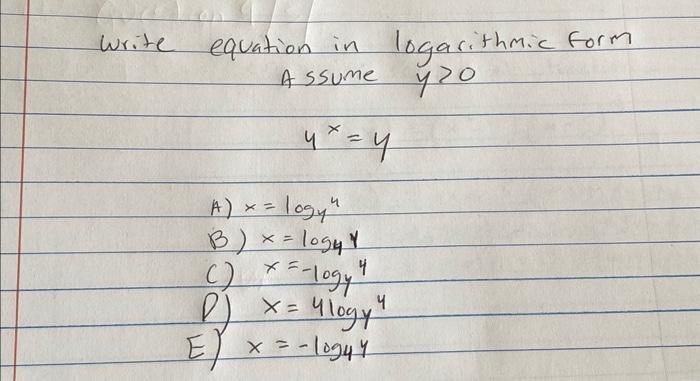 Write equation in logarithmic form
Assume y>0
4^x = y
A) x = log_y 4
B) x = log_4 y
C) x = -log_y 4
D) x = 4 log_y 4
E) x = -log_4 y